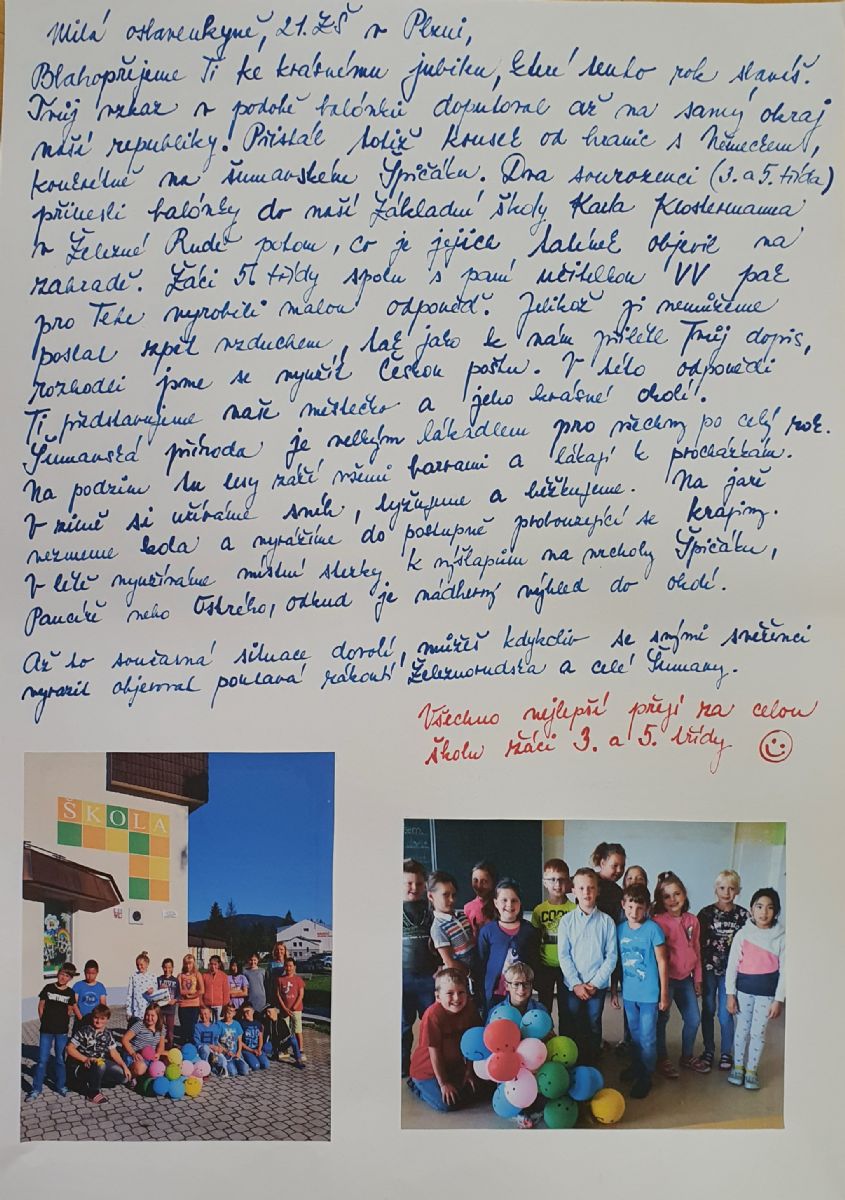 Milá oslavenkyně, 21. ZŠ v Plzni,
Blahopřejeme Ti ke krásnému jubileu, které tento rok slavíš.
Tvůj vzkaz v podobě balónků doputoval až na samý okraj
naší republiky! Přistál totiž kousek od hranic s Německem,
konkrétně na šumavském Špičáku. Dva sourozenci (3. a 5. třída)
přinesli balónky do naší Základní školy Karla Klostermanna
v Železné Rudě potom, co je jejich tatínek objevil na
zahradě. Žáci 5. třídy spolu s paní učitelkou VV pak
pro Tebe vyrobili malou odpověď. Jelikož ji nemůžeme
poslat zpět vzduchem, tak jako k nám přilétl Tvůj dopis,
rozhodli jsme se využít Českou poštu. V této odpovědi
Ti představujeme naše městečko a jeho krásné okolí.
Šumavská příroda je velkým lákadlem pro všechny po celý rok.
Na podzim tu lesy září všemi barvami a lákají k procházkám.
V zimě si užíváme sníh, lyžujeme a běžkujeme. Na jaře
vezmeme kola a vyrážíme do postupně probouzející se krajiny.
V létě využíváme místní stezky k výšlapům na vrcholy Špičáku,
Pancíře nebo Ostrého, odkud je nádherný výhled do okolí.
Až to současná situace dovolí, můžeš kdykoliv se svými svěřenci
vyrazit objevovat poutavá zákoutí Železnorudska a celé Šumavy.
Všechno nejlepší přejí za celou
školu žáci 3. a 5. třídy
ŠKOLA